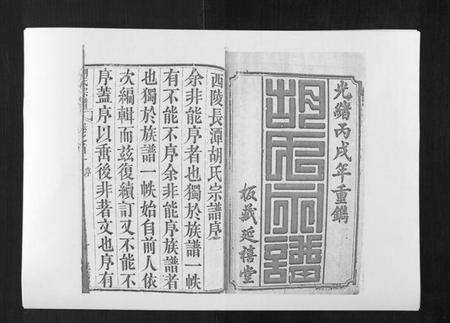 光緒丙戌年重鐫
胡氏宗譜
板藏延禧堂
西陵長潭胡氏宗譜序
余非能序者也獨於族譜一帙
有不能不序余非能序族譜者
也獨於族譜一帙始自前人依
次編輯而茲復續訂又不能不
序蓋序以啇後非著文也序有